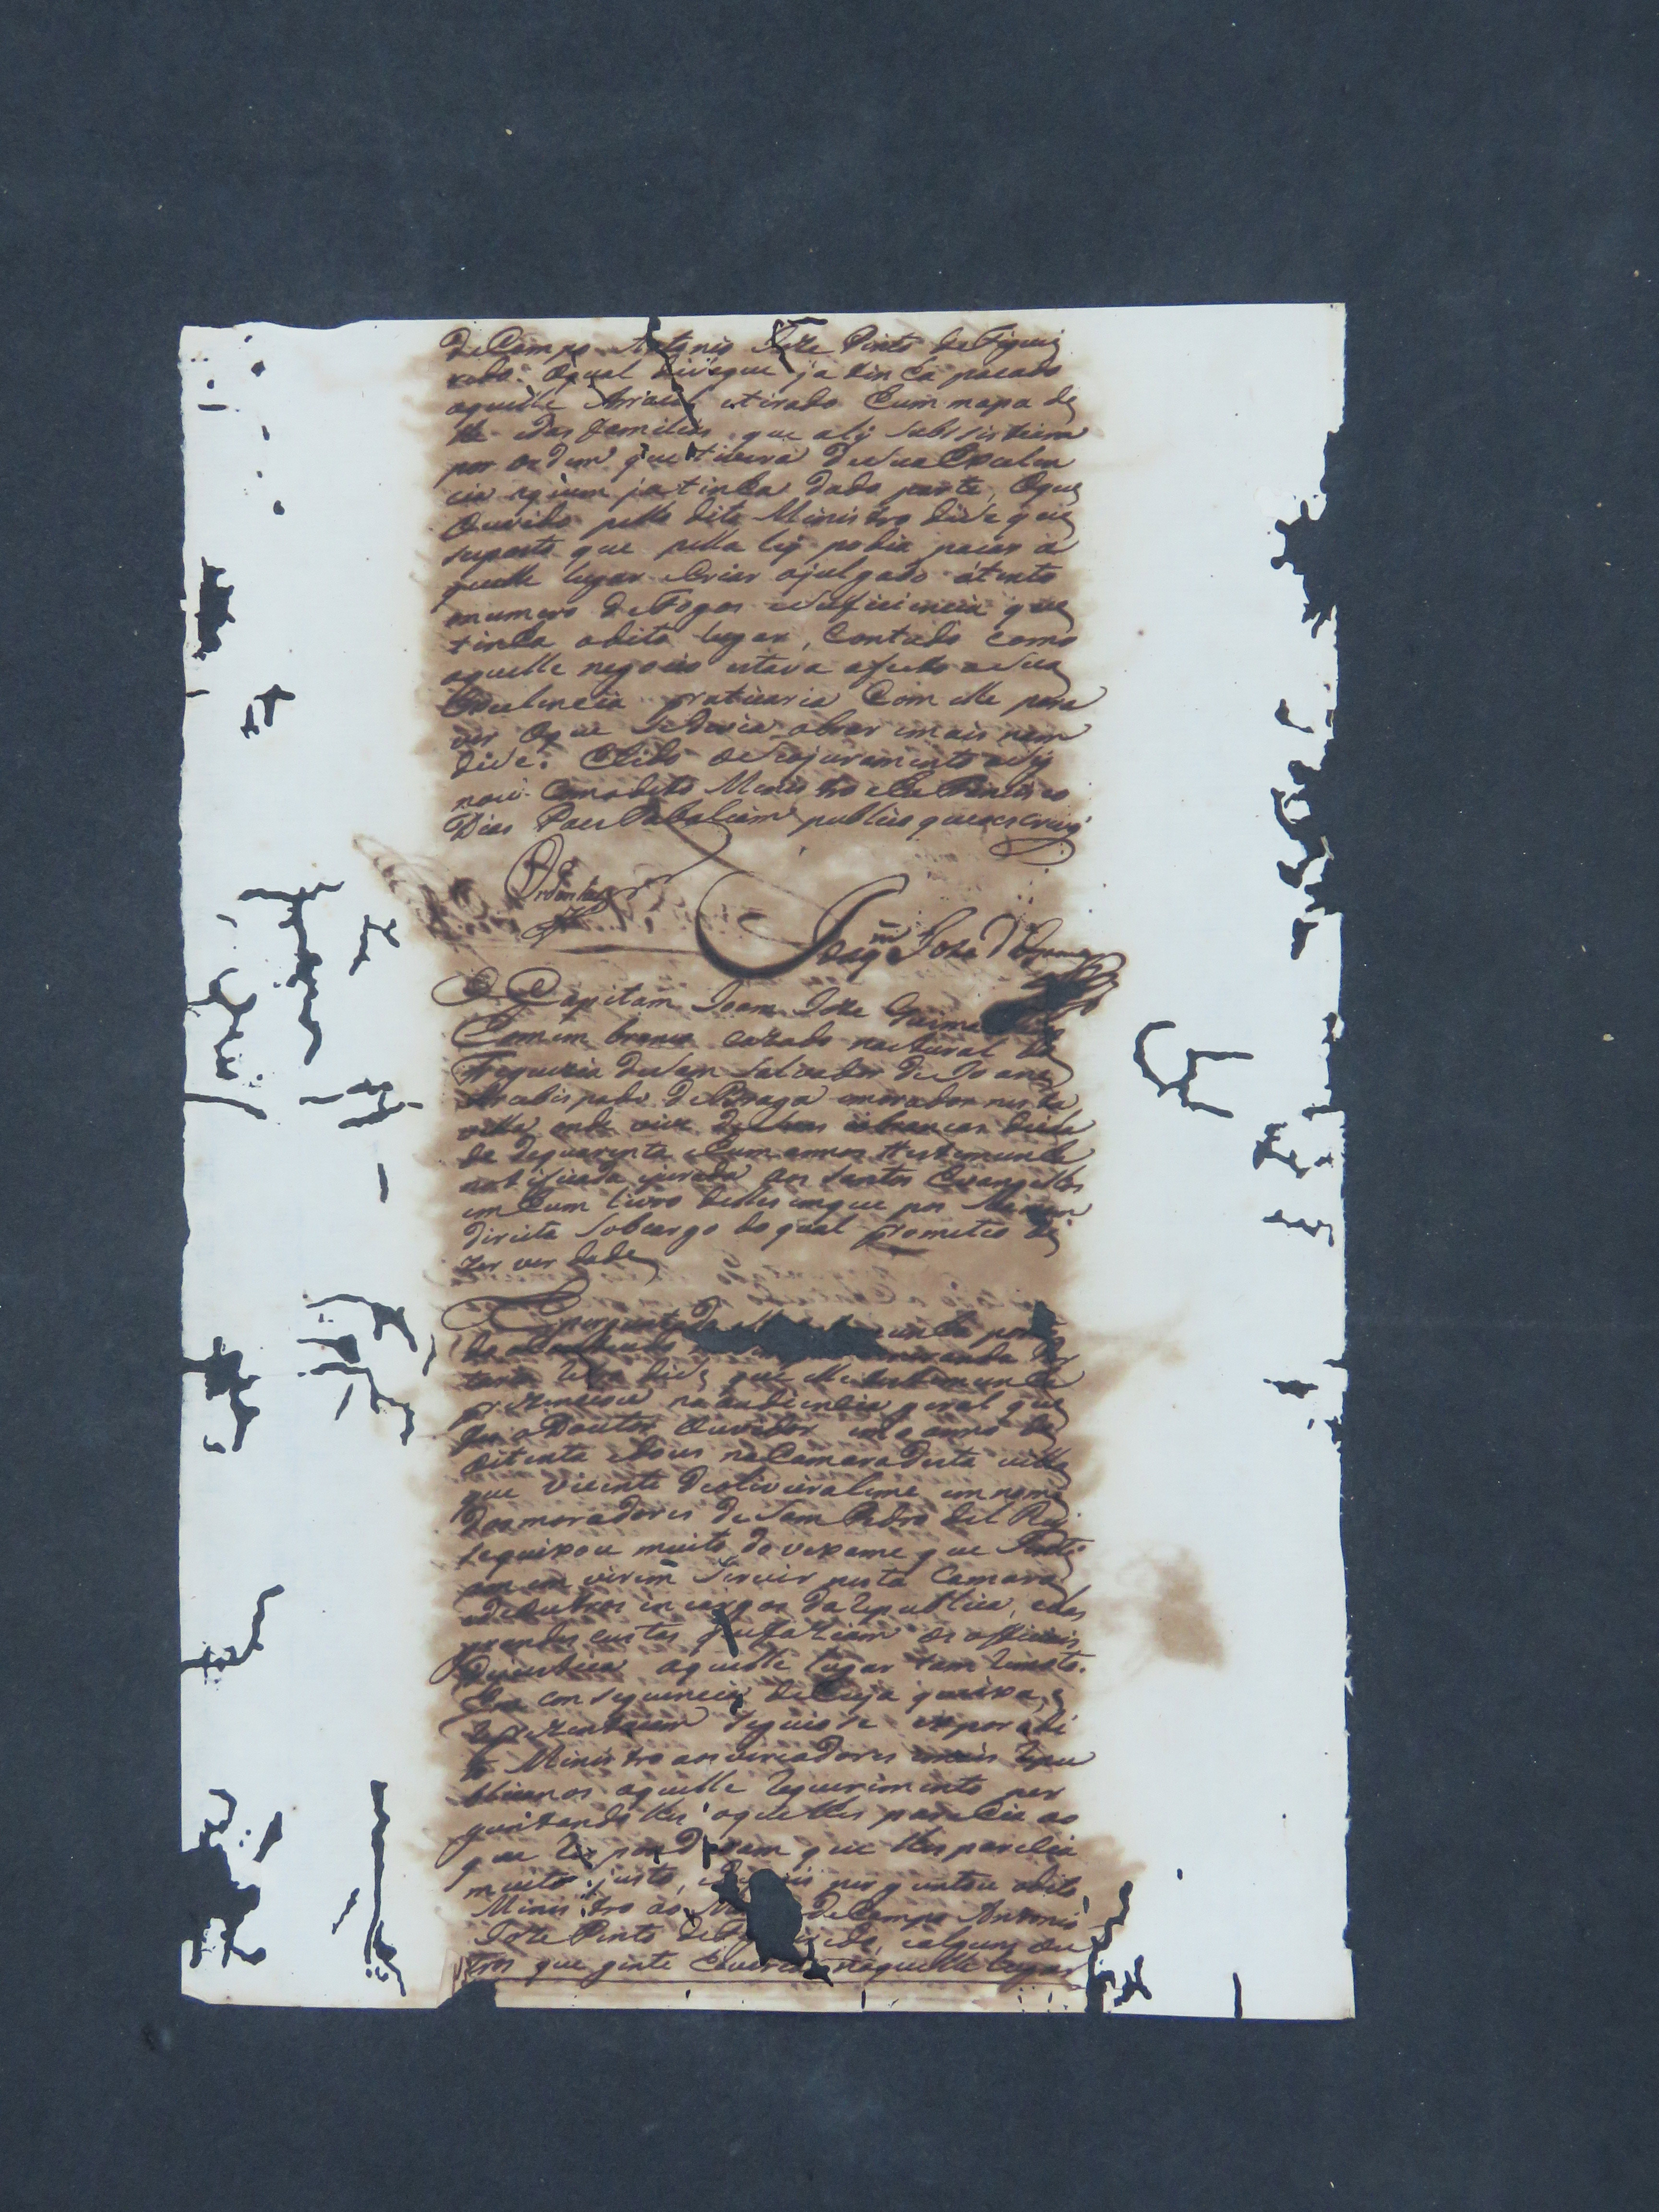 de Campo Antonio Joze Pinto de Figuei
redo. Oqual disse que ja tinha pacado
aquelle Arraial etirado hum mapa de
lle edas familias que alý subssistiam
por ordem que tivera de sua Excelen
cia aquem ja tinha dado parte, Oque
Ouvido pello dito Ministro disse que
suposto que pella leý podia pacar a
quelle lugar Criar ojulgado atento
onumero de Fogos esuficiencia que
tinha odito lugar, Contudo como
aquelle negocio estava afecto asua
Excelencia praticaria Com elle para
ver Oque sedevia obrar emais nam
disse. Elido oseojuramento asý
nou Comodito Ministro e Eu Francisco
Dias Paes Tabaliam publico queoescrevý
Joaqm Joze
O Capitam Joam Joze Guima
homem branco cazado natural da
Freguezia de Sam Salvador de Joane
Arcebispado de Braga emorador nesta
villa onde vive de suas cobrancas de ida
de de quarenta ehum annos testemunha
notificada jurada aos Santos Evangelhos
em hum livro delles emque pos Mam
direita Sobcargo do qual prometeo di
zer verdade
E perguntado unha pello
taria disse que elle testemunha
prezenciou na audiencia geral que
fes o Doutor Ouvidor em o anno de
oitenta edous na Camara desta villa
que Vicente de oliveira leme em nome
dos moradores de Sam Pedro del Rey
sequixou muito do vexame que Senti
am em virem Servir nesta Camara
ede outros encargos da Republica, edas
grandes custas que faziam os officiais
de justica aquelle lugar tam Remoto.
Em consequencia de Cuja queixa, e
Reprezentacam seguiose expor o di
to Ministro aos vereadores emais Repu
blicanos aquelle Requerimento per
guntando lhes oque lhes parecia ao
que Responderam que lhes parecia
muito justo, perguntou odito
Ministro ao de Campo Antonio
Joze Pinto de Figueiredo, ealguns ou
tros que gente haveria naquelle lugar